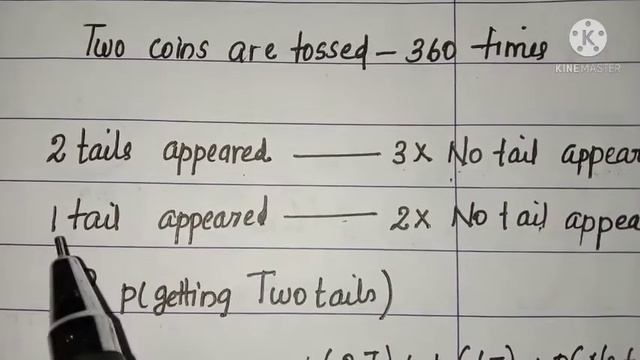 Two coins are tossed – 360 times
K
KINEMASTER
2 tails appeared —— 3x No tail appear
1 tail appeared —— 2x No tail appea
P(getting Two tails)